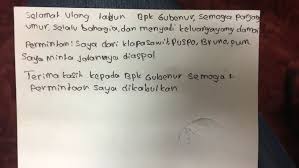 Selamat Ulang tahun Bpk Gubenur, semoga panjang
umur, selalu bahagia, dan menjadi keluarga yang damai
Permintaan: Saya dari klapasawit Puspo, Bruno, pwr.
Saya minta jalannya diaspal
Terima kasih kepada Bpk Gubenur Semoga
Permintaan saya dikabulkan